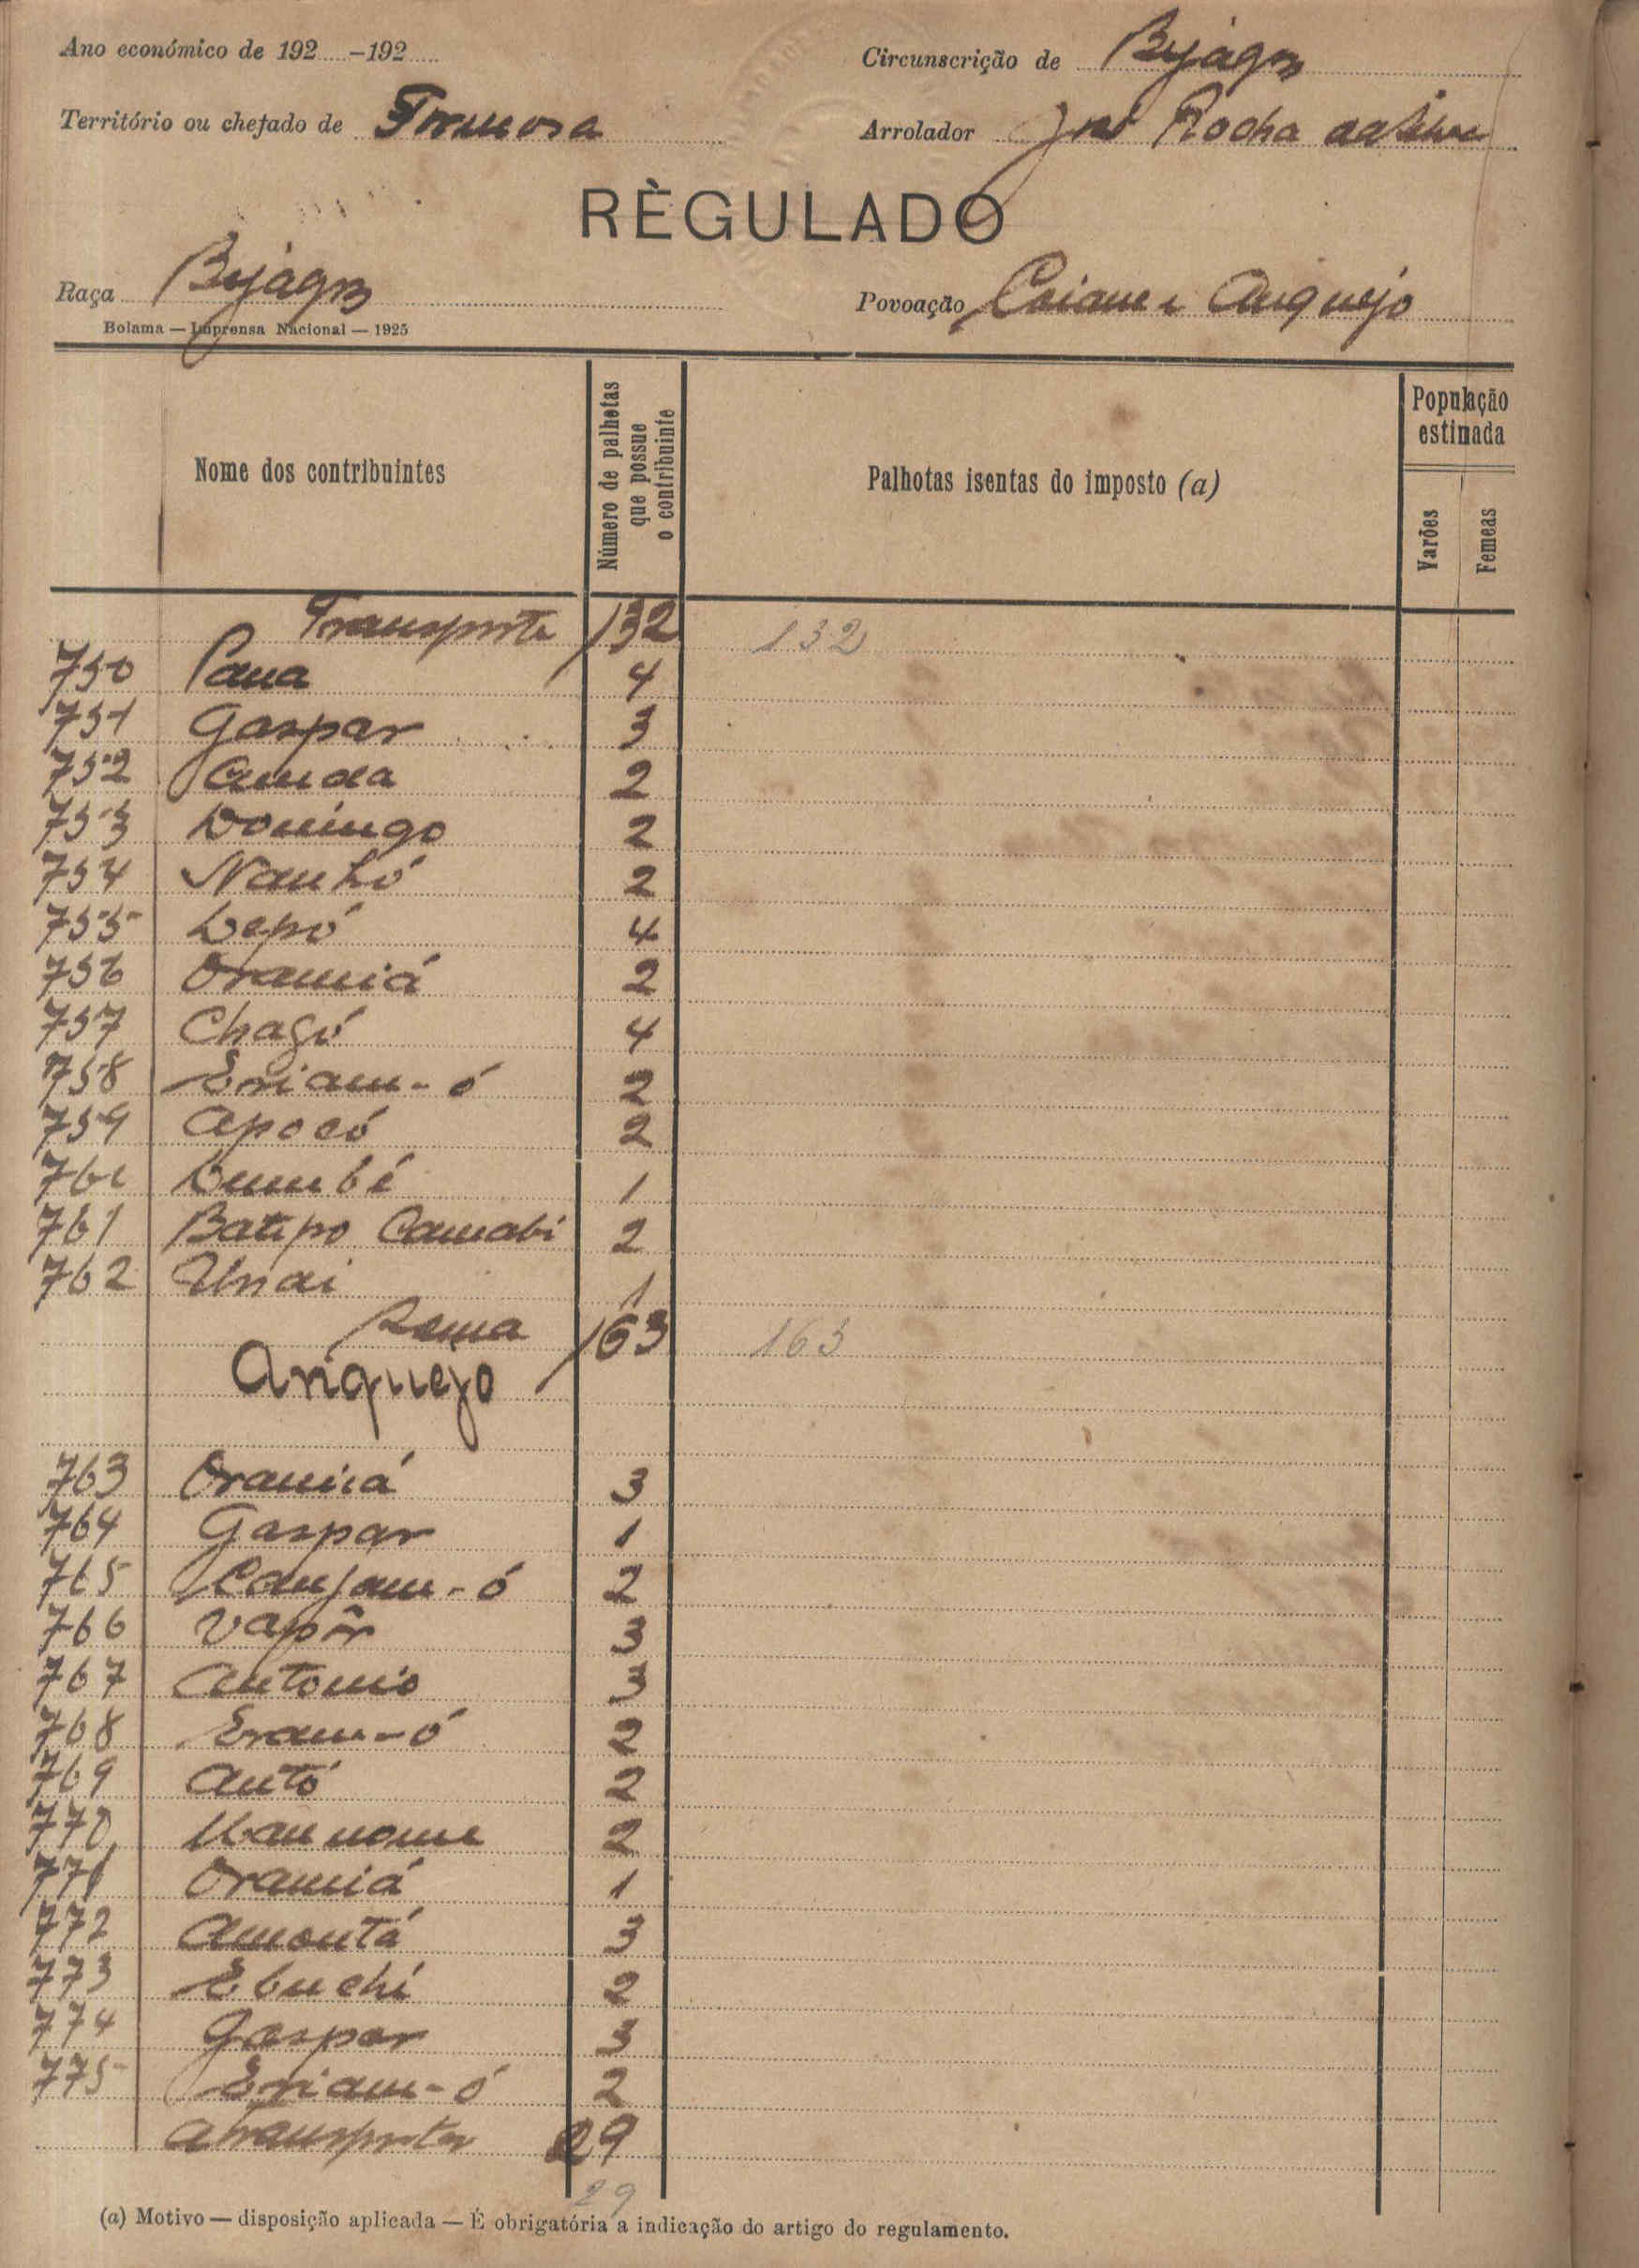 Ano económico de 192.....-192.....
Circunscrição de Byágos
Território ou chefado de Formosa
Arrolador José Rocha da Silva
RÈGULADO
Raça Byágos
Povoação Caiame e Ariquejo
Bolama — Imprensa Nacional — 1925
Nome dos contribuintes
Número de palhetas que possue o contribuinte
Palhotas isentas do imposto (a)
População estinada
Varões
Femeas
Transporte 132 132
750 Pana 4
751 Gaspar 3
752 2
753 Domingo 2
754 Nanhó 2
755 Depó 4
756 Oramiá 2
757 Chagó 4
758 Eriam-ó 2
759 Apocó 2
760 Dumbé 1
761 Batipo Camabi 2
762 Unai 1
Soma 163 163
Ariquejo
763 Oramiá 3
764 Gaspar 1
765 Canjam-ó 2
766 Vapôr 3
767 Antonio 3
768 Eram-ó 2
769 Antó 2
770 2
771 Oramiá 1
772 Amontá 3
773 Ebuchi 2
774 Gaspar 3
775 Eriam-ó 2
A transportar 29
29
(a) Motivo — disposição aplicada — É obrigatória a indicação do artigo do regulamento.